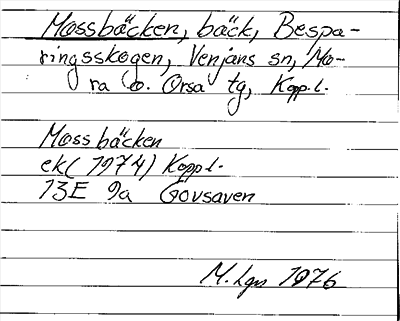 Mossbäcken, bäck, Bespa-
ringsskogen, Venjans sn, Mo-
ra o. Orsa tg, Kopp.l.
Mossbäcken
ek (1974) Kopp.l.
13E 9a Gövsaven
M. Lgn 1976